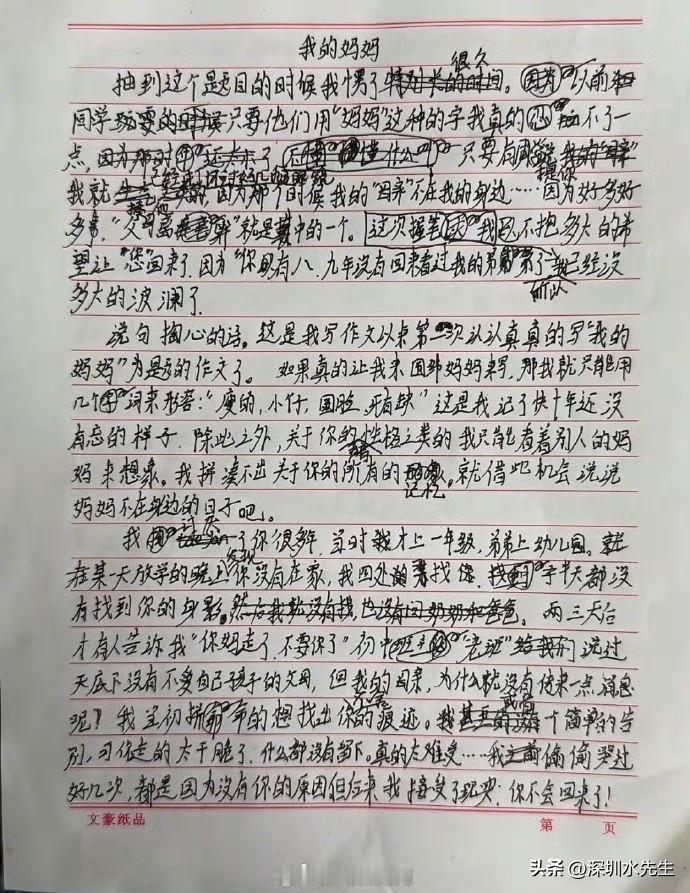 我的妈妈
很久
抽到这个题目的时候我愣了特别长的时间。因为以前和
同学玩耍的时候只要他们用“妈妈”这种的字我真的忍不了一
点,因为那时 还未 了 不懂 懂什么 只要有同学说我的“母亲”
提你
我就 因为那个时候我的“母亲”不在我的身边……因为好多好
多事,“父母离 ”就是其中的一个。这次提笔 我也不抱多大的希
望让“您”回来了,因为“你”都有八、九年没有回来看过我的弟弟了 我已经没
所以
多大的波澜了.
说句掏心的话。这是我写作文以来第一次认认真真的写“我的
妈妈”为题的作文了。如果真的让我来回忆妈妈来写,那我就只能用
几个词来形容:“瘦的,小个,圆脸,牙有缺”这是我记了快十年还没
有忘的样子.除此之外,关于你的性格之类的我只能看着别人的妈
妈来想象。我拼凑不出关于你的所有的
记忆
就借此机会说说
妈妈不在身边的日子吧。
我 了你很多年,当时我才上一年级,弟弟上幼儿园。就
发现
在某一天放学的晚上你没有在家,我四处的寻找你,找 半天都没
有找到你的身影,然后我就没有找,也没有问奶奶和爸爸。两三天后
才有人告诉我“你妈走了,不要你了”初中班主 “老班”给我们说过
天底下没有不爱自己孩子的父母,但我的母亲,为什么就没有传来一点消息
呢?我当初拼命的想找出你的痕迹。我甚至 一个简单的告
别,可你走的太干脆了,什么都没有留下。真的太难受……我之前偷偷哭过
好几次,都是因为没有你的原因但后来,我接受了现实:你不会回来了!
文豪纸品
第 页
头条@深圳水先生